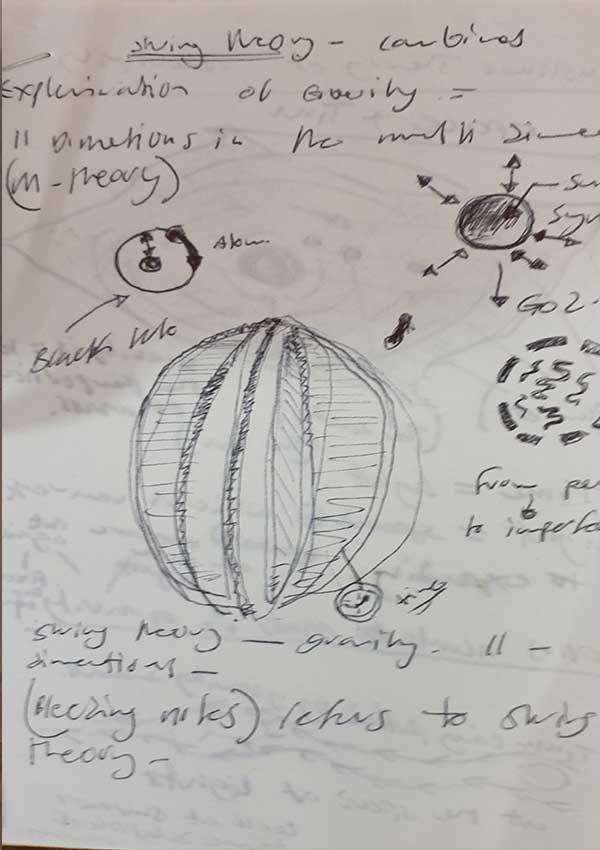 swing theory - combines
Explanation of Gravity =
11 Dimetions in the multi Dime
(M-theory)
Sun
Sy
Atom
Black hole
Go 2
from pe
to imperfe
swing theory — gravity. 11 -
dimentions -
(Bleeding notes) refers to swing
theory -